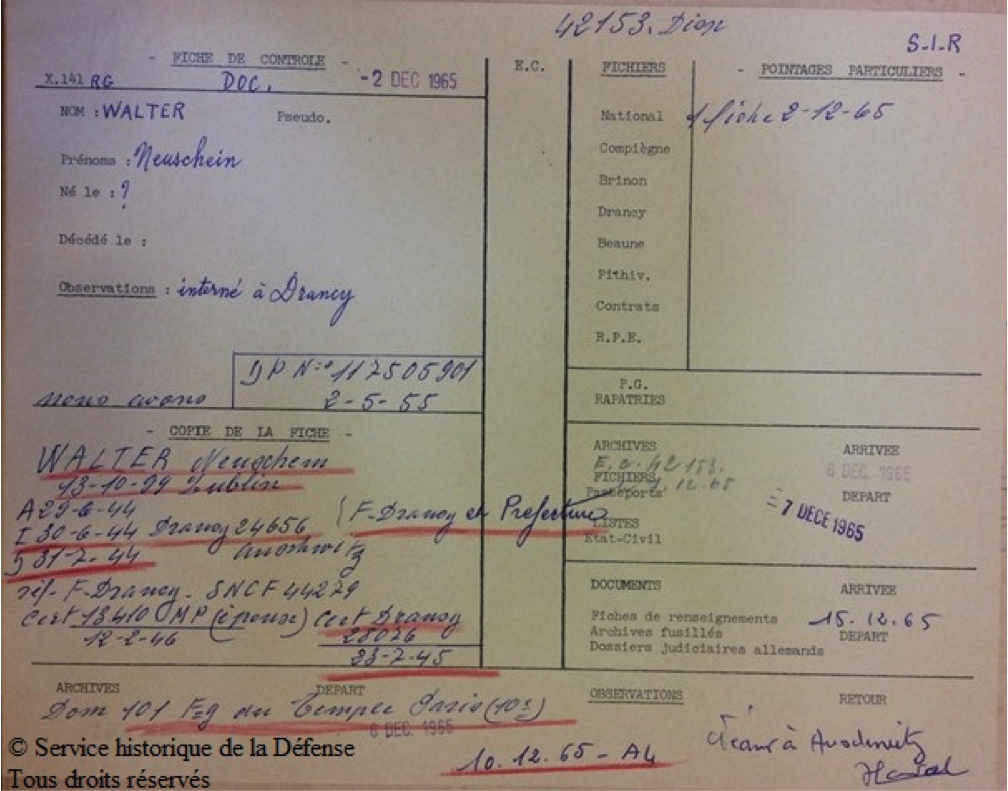 42153. Dion
S-I-R
- FICHE DE CONTROLE -
X.141 RG DOC. -2 DEC 1965
NOM : WALTER Pseudo.
Prénoms : Neuschein
Né le : ?
Décédé le :
Observations : interné à Drancy
DP N° 117505901
2-5-55
nous avons
- COPIE DE LA FICHE -
WALTER Neuschein
13-10-99 Lublin
A 29-6-44
I 30-6-44 Drancy 24656 (F-Drancy et Prefecture
D 31-7-44 Auschwitz
réf- F-Drancy - SNCF 44279
Cert 13410 OMP (épouse) Cert Drancy
12-2-46 28026
23-7-45
E.C.
FICHIERS
- POINTAGES PARTICULIERS -
National 1 fiche 2-12-65
Compiègne
Brinon
Drancy
Beaune
Pithiv.
Contrats
R.P.E.
P.G.
RAPATRIES
ARCHIVES ARRIVEE
E.C. 42153. 6 DEC. 1965
FICHIERS
Passeports 1.12.65 DEPART
= 7 DECE 1965
LISTES
Etat-Civil
DOCUMENTS ARRIVEE
Fiches de renseignements 15.12.65
Archives fusillés DEPART
Dossiers judiciaires allemands
ARCHIVES DEPART
Dom 101 Fbg du Temple Paris (10e)
6 DEC. 1965
10.12.65 - A4
OBSERVATIONS RETOUR
à Auschwitz
© Service historique de la Défense
Tous droits réservés